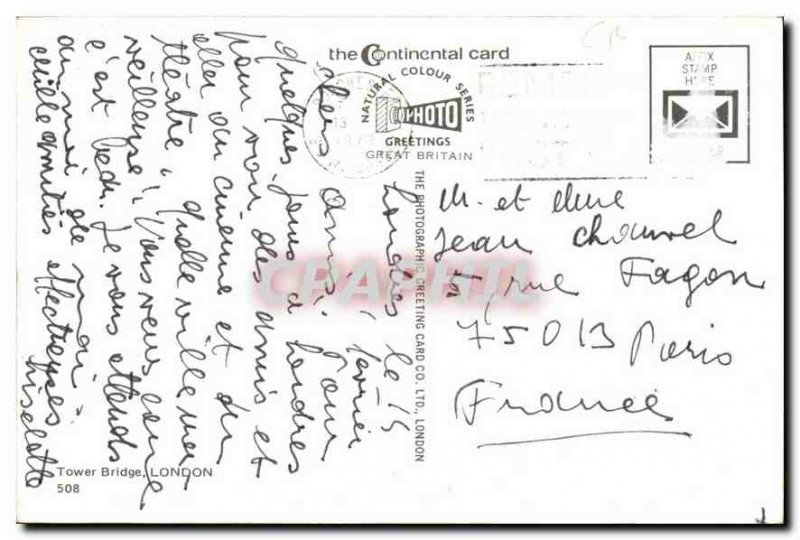 the Continental card
NATURAL COLOUR SERIES
PHOTO
GREETINGS
GREAT BRITAIN
AFFIX
STAMP
HERE
CPAPHIL
THE PHOTOGRAPHIC GREETING CARD CO. LTD., LONDON
Londres le 15
février
Chers amis, Pour
quelques jours à Londres
pour voir des amis et
aller au cinéma et du
théâtre, quelle ville mer-
veilleuse! Vous venez
c'est Je vous attends
au mois de mai
mille amitiés affectueuses
Liselotte
M. et Mme
Jean Chauvel
5, rue Fagon
75013 Paris
France
Tower Bridge, LONDON
508